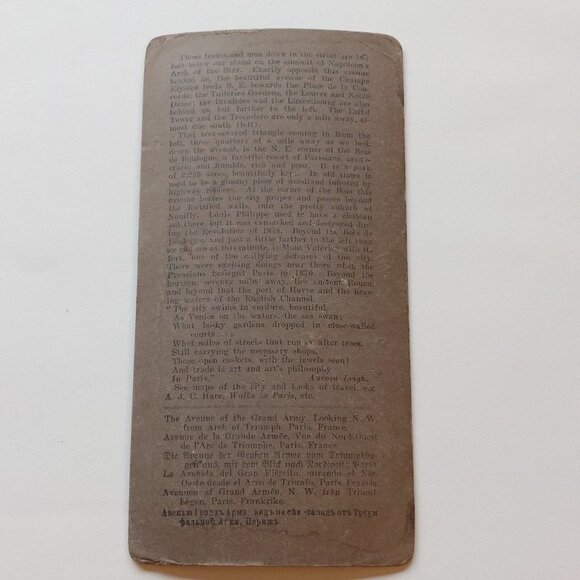 Those teams and men down in the street are 160
feet below our stand on the summit of Napoleon's
Arch of the Star. Exactly opposite this avenue
behind us, the beautiful avenue of the Champs
Elysées leads S. E. towards the Place de la Con-
corde, the Tuileries Gardens, the Louvre and Notre
Dame; the Invalides and the Luxembourg are also
behind us, but farther to the left. The Eiffel
Tower and the Trocadero are only a mile away, al-
most due south (left).
That tree-covered triangle coming in from the
left, three quarters of a mile away as we look
down the avenue, is the N. E. corner of the Bois
de Boulogne, a favorite resort of Parisians, aristo-
cratic and humble, rich and poor. It is a park
of 2,250 acres, beautifully kept. In old times it
used to be a gloomy piece of woodland infested by
highway robbers. At the corner of the Bois this
avenue leaves the city proper and passes beyond
the fortified walls, into the pretty suburb of
Neuilly. Louis Philippe used to have a chateau
out there, but it was ransacked and destroyed dur-
ing the Revolution of 1848. Beyond the Bois de
Boulogne and just a little farther to the left than
we can see at this minute, is Mont Valérien with its
fort, one of the outlying defences of the city.
There were exciting doings near there when the
Prussians besieged Paris in 1870. Beyond the
horizon, seventy miles away, lies ancient Rouen,
and beyond that the port of Havre and the heav-
ing waters of the English Channel.
"The city swims in verdure, beautiful
As Venice on the waters, the sea swan;
What bosky gardens dropped in close-walled
courts . . .
What miles of streets that run after trees,
Still carrying the necessary shops,
Those open caskets, with the jewels seen!
And trade is art and art's philosophy
In Paris." Aurora Leigh.
See maps of the city and books of travel, e.g.
A. J. C. Hare, Walks in Paris, etc.
The Avenue of the Grand Army, Looking N. W.
from Arch of Triumph, Paris, France.
Avenue de la Grande Armée, Vue du Nord-Ouest
de l'Arc de Triomphe, Paris, France
Die Avenue der Großen Armee vom Triumphbo-
gen aus, mit dem Blick nach Nordwest; Paris
La Avenida del Gran Ejército, mirando al Nor-
Oeste desde el Arco de Triunfo, Paris, Francia
Avenuen of Grand Armén, N. W. från Triumf-
bågen, Paris, Frankrike.
Авеню Грандъ Арме, видъ на сѣв.-западъ отъ Тріум
фальной Арки, Парижъ.